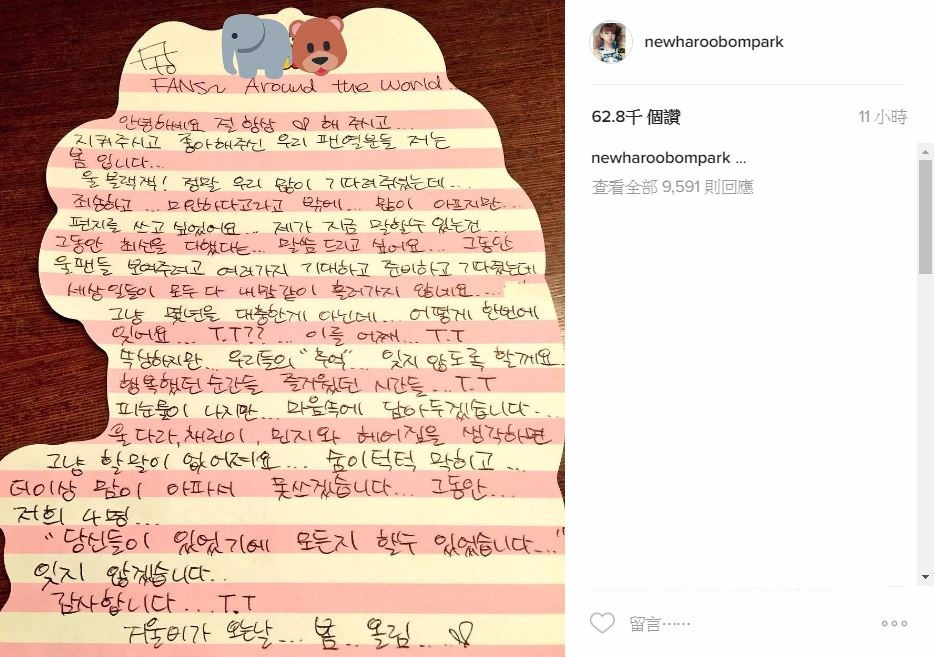 FANS~ Around the World..
안녕하세요 절 항상 ♡ 해 주시고...
지켜주시고 좋아해주신 우리 팬열분들 저는
봄 입니다...
울 블랙잭! 정말 우리 많이 기다려주셨는데...
죄송하고... 미안하다고라고 밖에... 맘이 아프지만...
편지를 쓰고 싶었어요... 제가 지금 말할수 있는건...
그동안 최선을 다했다는... 말씀 드리고 싶어요... 그동안
울팬들 보여주려고 여러가지 기대하고 준비하고 기다렸는데
세상일들이 모두 다 내맘같이 흘러가지 않네요...
그냥 몇년을 대충한게 아닌데... 어떻게 한번에
잊어요... T.T?? 이를 어째... T.T
속상하지만... 우리들의 "추억" 잊지 않도록 할께요.
행복했던 순간들 즐거웠던 시간들...T.T
피눈물이 나지만... 마음속에 담아두겠습니다...
울 다라, 채린이, 민지와 헤어짐을 생각하면
그냥 할말이 없어져요... 숨이턱턱 막히고...
더이상 맘이 아파서 못쓰겠습니다... 그동안...
저희 4명...
"당신들이 있었기에 모든지 할수 있었습니다..."
잊지 않겠습니다..
감사합니다... T.T
겨울비가 오는날... 봄 올림...♡
newharoobompark
62.8千 個讚 11 小時
newharoobompark ...
查看全部 9,591 則回應
留言⋯⋯